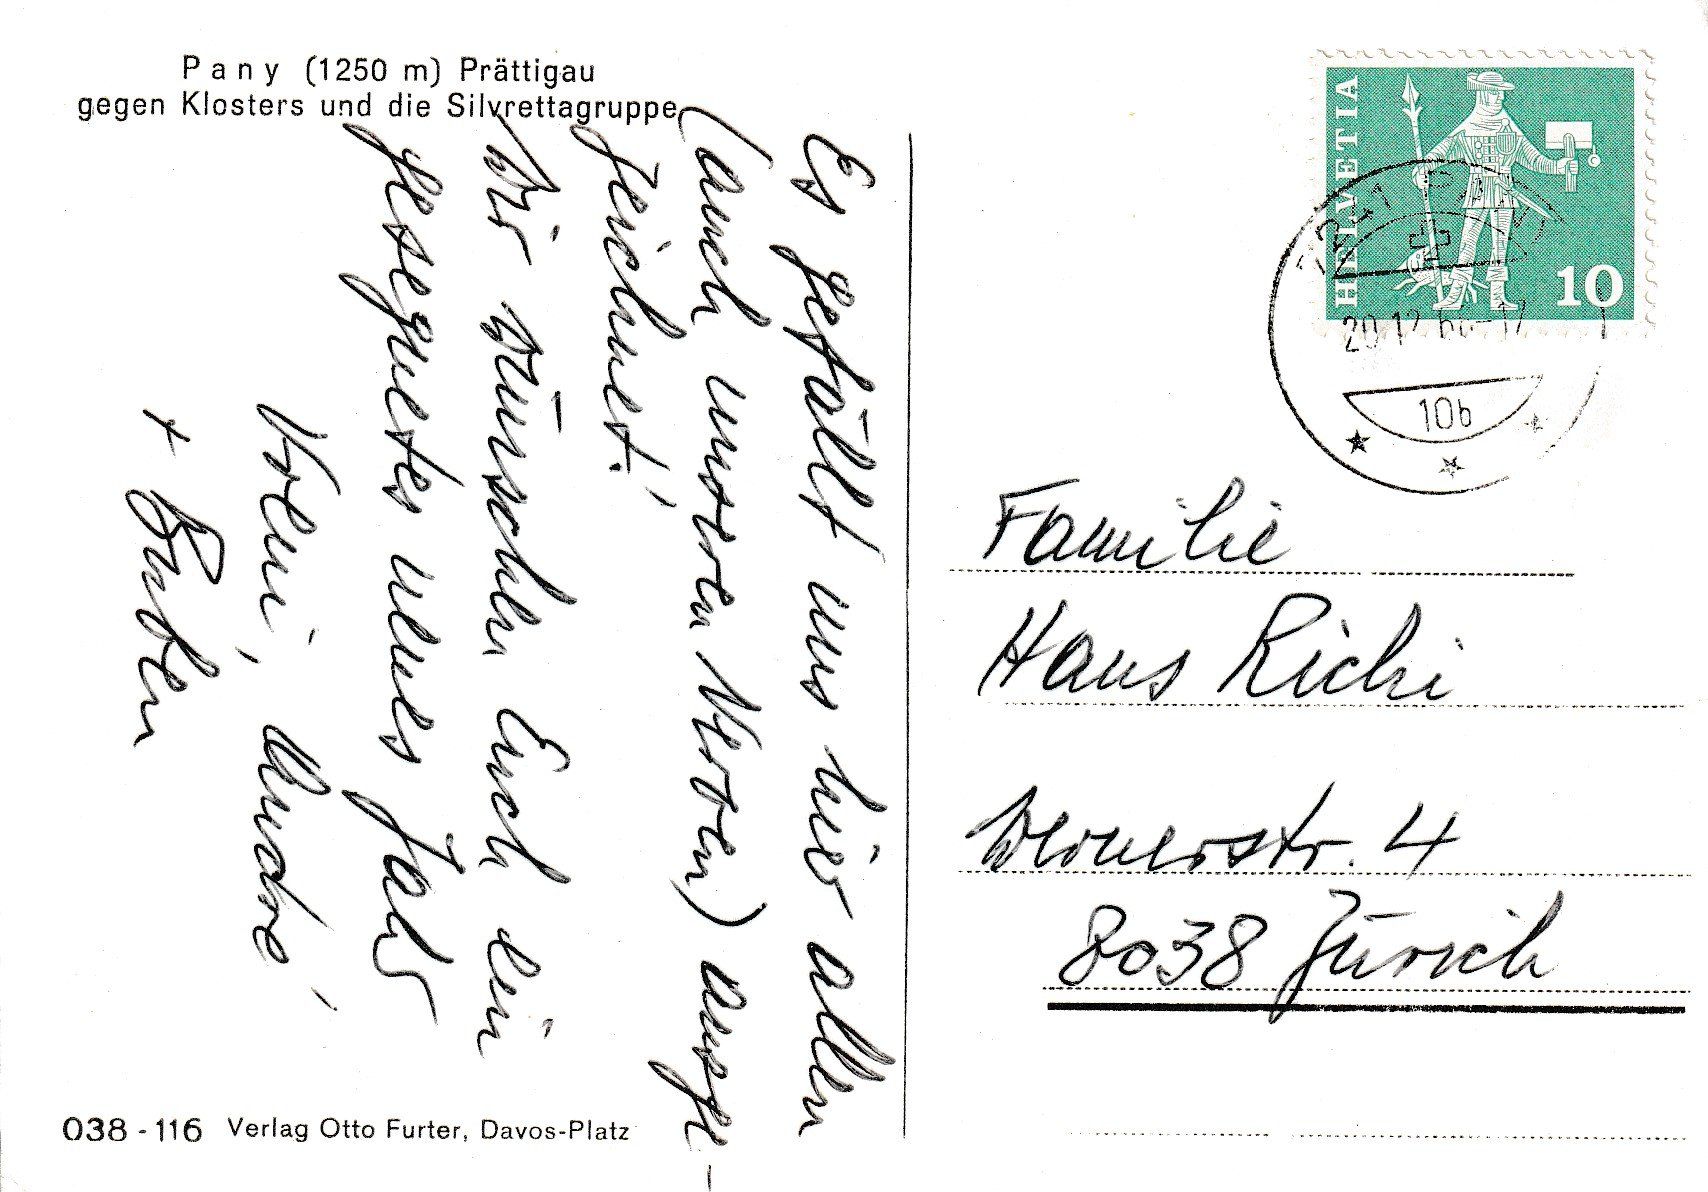 Pany (1250 m) Prättigau
gegen Klosters und die Silvrettagruppe
Es gefällt uns hier allen
(auch unsren Nerven) ausge-
zeichnet!
Wir wünschen Euch ein
gesegnetes neues Jahr
Vreni, André
+ Buben
038-116 Verlag Otto Furter, Davos-Platz
HELVETIA
10
PANY
20.12.66-17
10b
Familie
Hans Richi
Wernerstr. 4
8038 Zürich